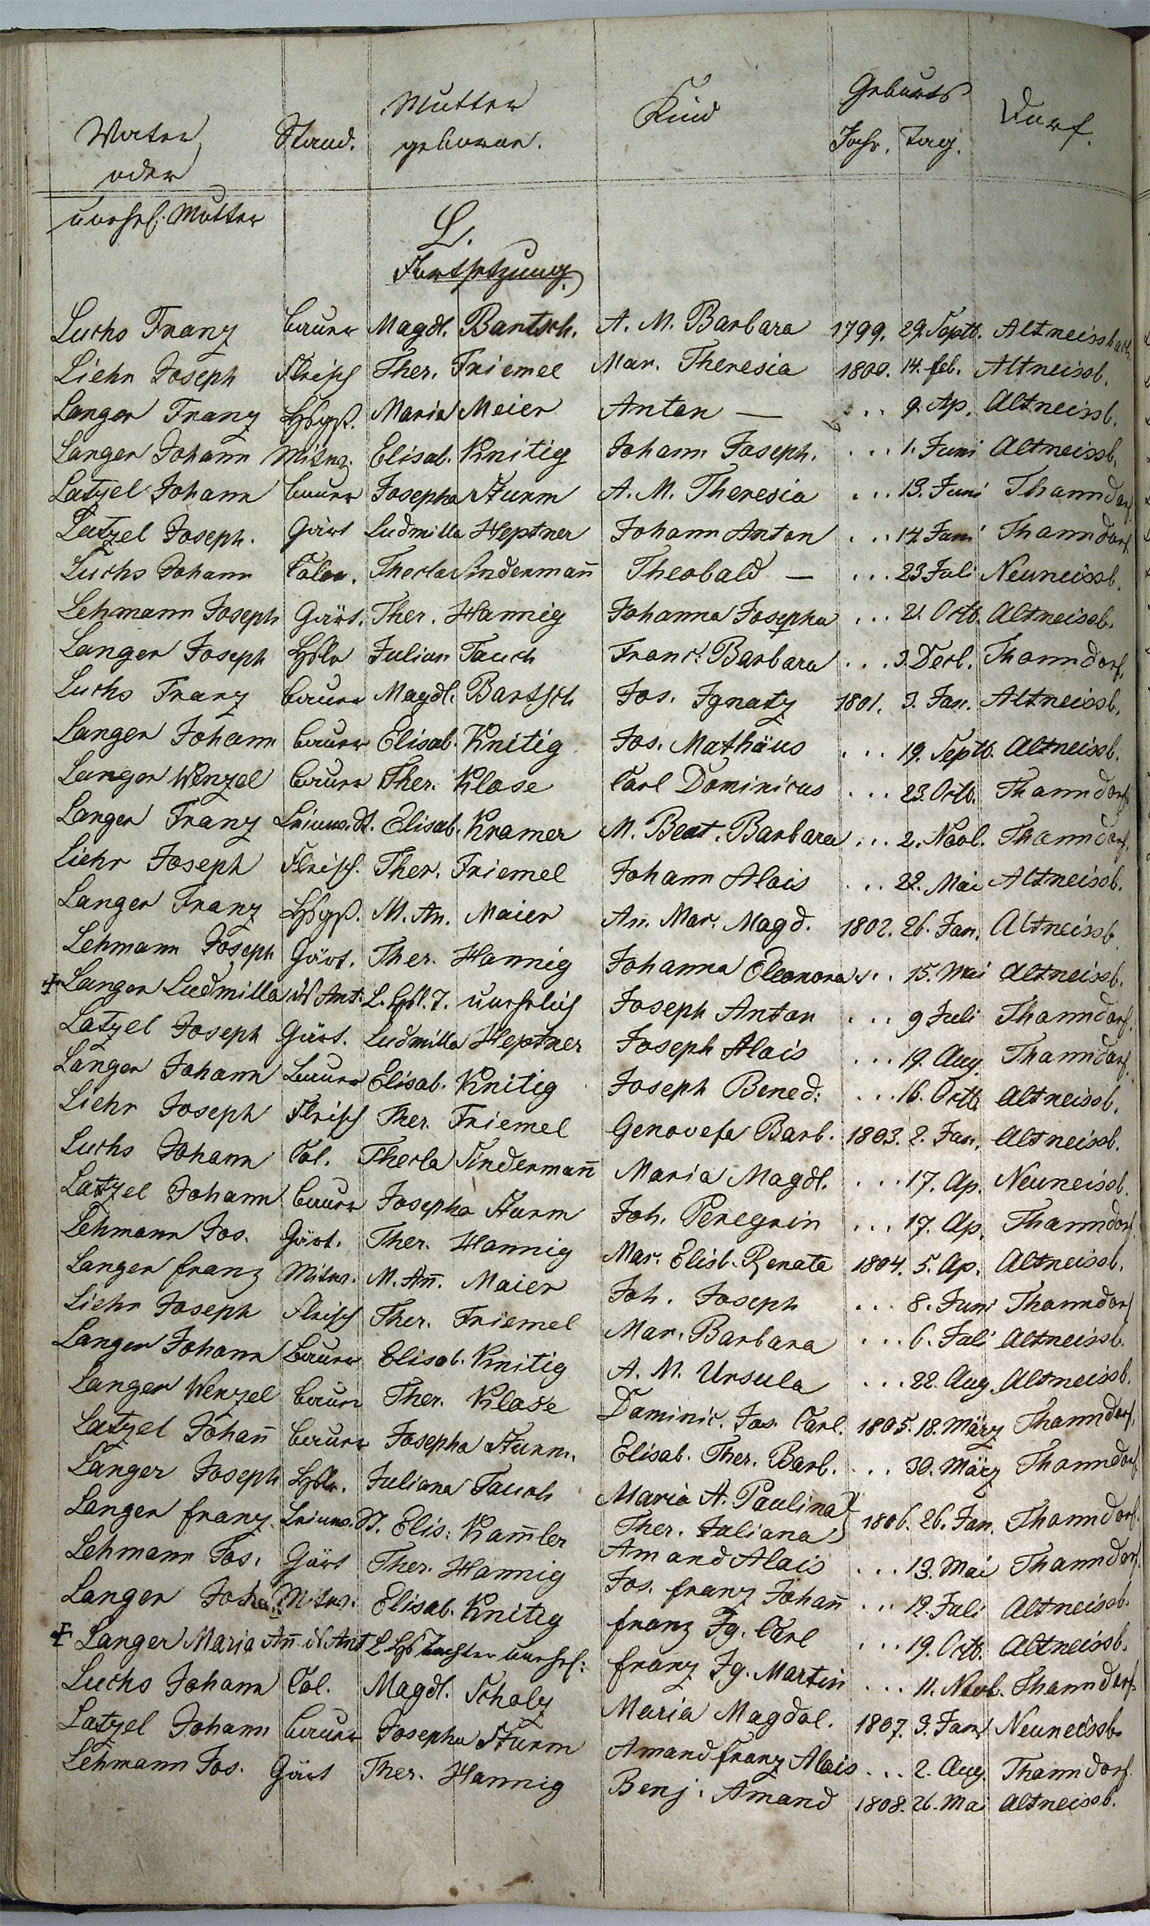 Vater Stand. Mutter Kind Geburts Dorf.
oder geborne. Jahr. Tag.
unehel. Mutter
L.
Fortsetzung
Luchs Franz bauer Magdl. Bartsch. A. M. Barbara 1799. 29. Septb. Altneissbach
Liehr Joseph Fleisch Ther. Friemel Mar. Theresia 1800. 14. feb. Altneissb.
Langer Franz Maria Meier Anton — ... 9. Ap. Altneissb.
Langer Johann Mitw. Elisab. Knitig Johann Joseph. ... 1. Juni Altneissb.
Latzel Johann bauer Josepha Sturm A. M. Theresia ... 13. Juni Thanndorf
Latzel Joseph. Gärt Ludmilla Heptner Johann Anton ... 14. Juni Thanndorf.
Luchs Johann Colon. Thecla Sindermañ Theobald — ... 23 Juli Neuneissb.
Lehmann Joseph Gärt. Ther. Hannig Johanna Josepha ... 21. Octb. Altneissb.
Langer Joseph Hslr Julian Tauch Franc. Barbara ... 3. Decb. Thanndorf.
Luchs Franz bauer Magdl. Bartsch Jos. Ignatz 1801. 3. Jan. Altneissb.
Langer Johann bauer Elisab. Knitig Jos. Mathäus ... 19. Septb. Altneissb.
Langer Wenzel bauer Ther. Klase Carl Dominicus ... 23. Octb. Thanndorf
Langer Franz Elisab. Kramer M. Beat. Barbara ... 2. Novb. Thanndorf.
Liehr Joseph Fleisch. Ther. Friemel Johann Alois ... 22. Mai Altneissb.
Langer Franz M. An. Maier An. Mar. Magd. 1802. 26. Jan. Altneissb.
Lehmann Joseph Gärt. Ther. Hannig Johanna Eleonora ... 15. Mai Altneissb.
Langer Ludmilla d. Ant. L. Hsl. T. unehelich Joseph Anton ... 9 Juli Thanndorf.
Latzel Joseph Gärt. Ludmilla Heptner Joseph Alois ... 19. Aug. Thanndorf.
Langer Johann bauer Elisab. Knitig Joseph Bened: ... 16. Octb. Altneissb.
Liehr Joseph Fleisch Ther. Friemel Genovefa Barb. 1803. 2. Jan. Altneissb.
Luchs Johann Col. Thecla Sindermañ Maria Magdl. ... 17. Ap. Neuneissb.
Latzel Johann bauer Josepha Sturm Joh. Peregrin ... 17. Ap. Thanndorf.
Lehmann Jos. Gärt. Ther. Hannig Mar. Elisb. Renate 1804. 5. Ap. Altneissb.
Langer franz Mitw. M. Añ. Maier Joh. Joseph ... 8. Juni Thanndorf
Liehr Joseph Fleisch Ther. Friemel Mar. Barbara ... 6. Juli Altneissb.
Langer Johann bauer Elisab. Knitig A. M. Ursula ... 22. Aug. Altneissb.
Langer Wenzel bauer Ther. Klase Dominic. Jos. Carl. 1805. 18. März Thanndorf.
Latzel Johañ bauer Josepha Sturm. Elisab. Ther. Barb. ... 30. März Thanndorf.
Langer Joseph Hslr. Juliana Tauch Maria A. Paulina
Ther. Juliana 1806. 26. Jan. Thanndorf.
Langer franz Elis: Kam̃ler Amand Alois ... 13. Mai Thanndorf.
Lehmann Jos. Gärt Ther. Hannig Jos. franz Johañ ... 12. Juli Altneissb.
Langer Joha Mitw. Elisab. Knitig franz Ig. Carl ... 19. Octb. Altneissb.
Langer Maria Añ. d. Ant L. Hsl tochter unehel: franz Ig. Martin ... 11. Novb. Thanndorf
Luchs Johann Col. Magdl. Scholz Maria Magdal. 1807. 3. Jan. Neuneissb.
Latzel Johann bauer Josepha Sturm Amand franz Alois ... 2. Aug. Thanndorf.
Lehmann Jos. Gärt Ther. Hannig Benj. Amand 1808. 26. Mai Altneissb.